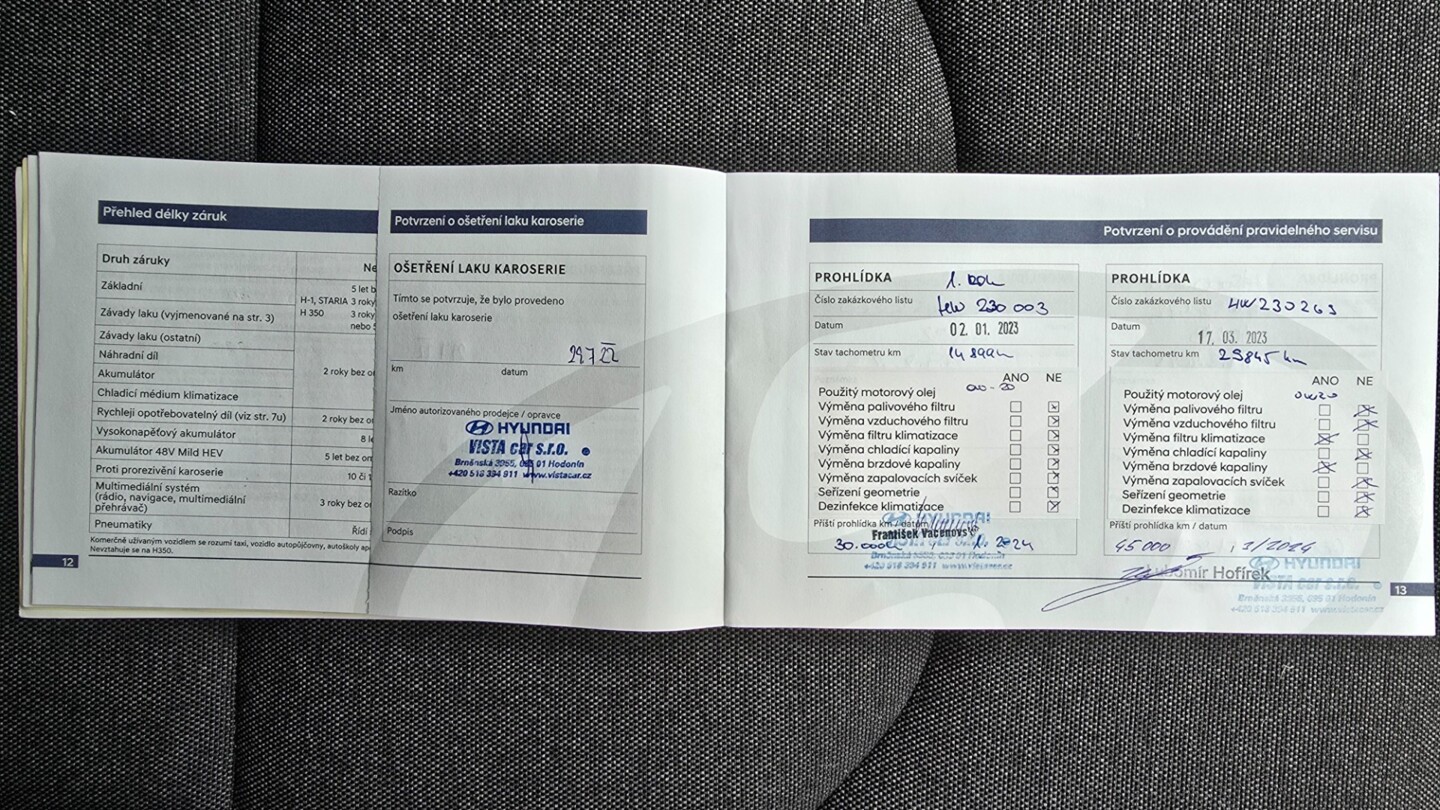 Přehled délky záruk
Druh záruky
Ne
Základní
5 let b
H-1, STARIA 3 roky
Závady laku (vyjmenované na str. 3)
H 350 3 roky
nebo 5
Závady laku (ostatní)
Náhradní díl
Akumulátor
2 roky bez o
Chladicí médium klimatizace
Rychleji opotřebovatelný díl (viz str. 7u)
2 roky bez o
Vysokonapěťový akumulátor
8 le
Akumulátor 48V Mild HEV
5 let bez o
Proti prorezivění karoserie
10 či 1
Multimediální systém
(rádio, navigace, multimediální
přehrávač)
3 roky bez o
Pneumatiky
Řídí
Komerčně užívaným vozidlem se rozumí taxi, vozidlo autopůjčovny, autoškoly
Nevztahuje se na H350.
12
Potvrzení o ošetření laku karoserie
OŠETŘENÍ LAKU KAROSERIE
Tímto se potvrzuje, že bylo provedeno
ošetření laku karoserie
29 7 22
km datum
Jméno autorizovaného prodejce / opravce
HYUNDAI
VISTA car s.r.o.
Brněnská 3955, 695 01 Hodonín
+420 518 394 911 www.vistacar.cz
Razítko
Podpis
Potvrzení o provádění pravidelného servisu
PROHLÍDKA 1. rok
Číslo zakázkového listu 230 003
Datum 02. 01. 2023
Stav tachometru km
ANO NE
Použitý motorový olej
Výměna palivového filtru
Výměna vzduchového filtru
Výměna filtru klimatizace
Výměna chladící kapaliny
Výměna brzdové kapaliny
Výměna zapalovacích svíček
Seřízení geometrie
Dezinfekce klimatizace
Příští prohlídka km / datum
HYUNDAI
František
30.000 1. 2024
+420 518 394 911 www.vistacar.cz
PROHLÍDKA
Číslo zakázkového listu HW230263
Datum
17. 03. 2023
Stav tachometru km 25845 km
ANO NE
Použitý motorový olej 0W20
Výměna palivového filtru
Výměna vzduchového filtru
Výměna filtru klimatizace
Výměna chladící kapaliny
Výměna brzdové kapaliny
Výměna zapalovacích svíček
Seřízení geometrie
Dezinfekce klimatizace
Příští prohlídka km / datum
45 000, 3/2024
HYUNDAI
Hofírek
VISTA car s.r.o.
Brněnská 3955, 695 01 Hodonín
+420 518 394 911 www.vistacar.cz
13